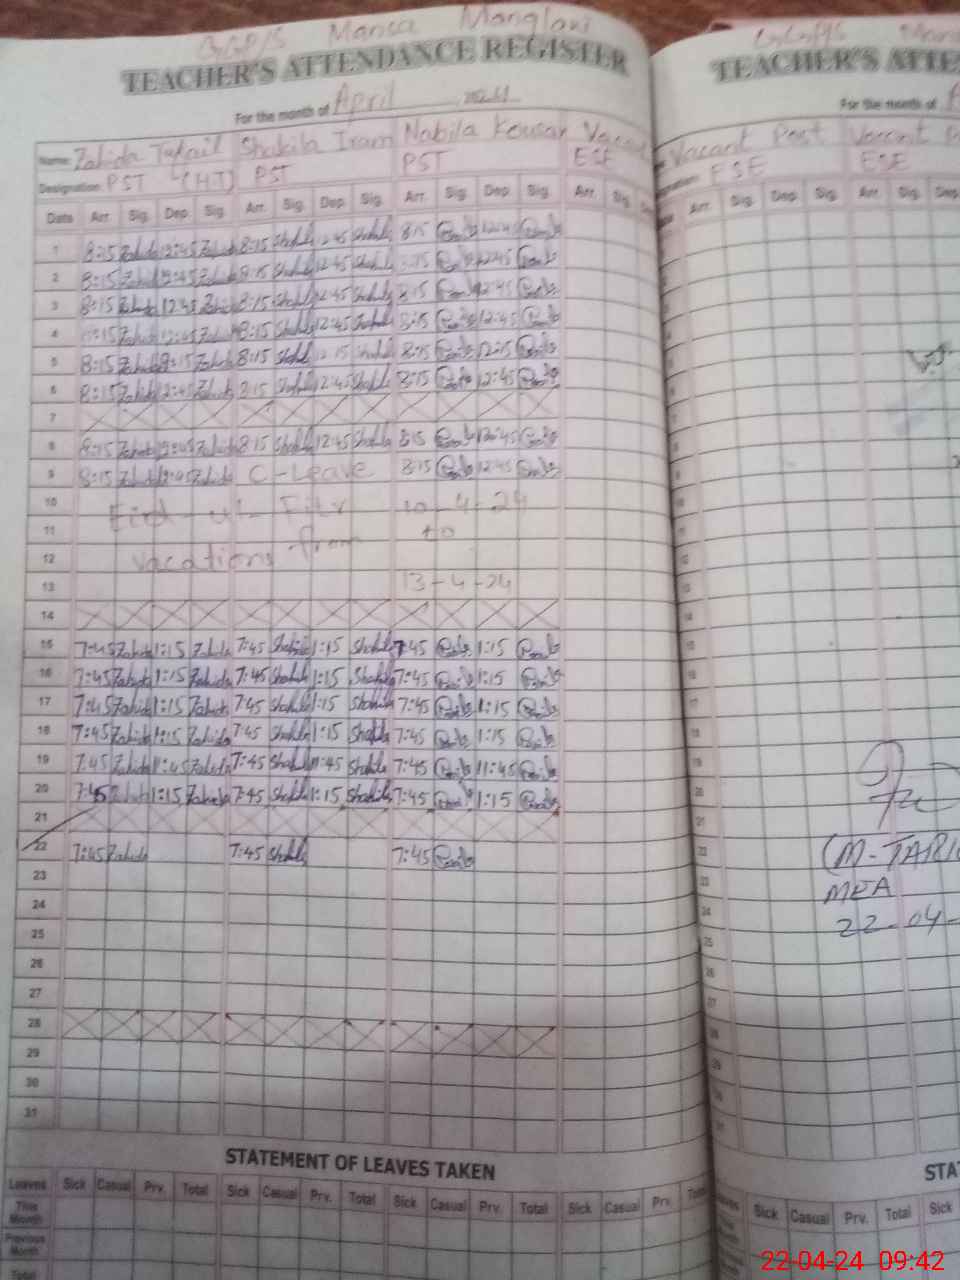 GGP/S Mansa Manglani
TEACHER'S ATTENDANCE REGISTER
For the month of April, 2024
Name: Zahida Tufail Shakila Iram Nabila Kousar Vacant
Designation: PST (HT) PST PST ESE
Date Arr. Sig. Dep. Sig. Arr. Sig. Dep. Sig. Arr. Sig. Dep. Sig. Arr. Sig.
1 8:15 Zahida 12:45 Zahida 8:15 Shakila 12:45 Shakila 8:15 12:45
2 8:15 Zahida 12:45 Zahida 8:15 Shakila 12:45 Shakila 8:15 12:45
3 8:15 Zahida 12:45 Zahida 8:15 Shakila 12:45 Shakila 8:15 12:45
4 8:15 Zahida 12:45 Zahida 8:15 Shakila 12:45 Shakila 8:15 12:45
5 8:15 Zahida 12:15 Zahida 8:15 Shakila 12:15 Shakila 8:15 12:15
6 8:15 Zahida 12:45 Zahida 8:15 Shakila 12:45 Shakila 8:15 12:45
7
8 8:15 Zahida 12:45 Zahida 8:15 Shakila 12:45 Shakila 8:15 12:45
9 8:15 Zahida 12:45 Zahida C-Leave 8:15 12:45
10 Eid-ul-Fitr 10-4-24
11 to
12 vacations from
13 13-4-24
14
15 7:45 Zahida 1:15 Zahida 7:45 Shakila 1:15 Shakila 7:45 1:15
16 7:45 Zahida 1:15 Zahida 7:45 Shakila 1:15 Shakila 7:45 1:15
17 7:45 Zahida 1:15 Zahida 7:45 Shakila 1:15 Shakila 7:45 1:15
18 7:45 Zahida 1:15 Zahida 7:45 Shakila 1:15 Shakila 7:45 1:15
19 7:45 Zahida 11:45 Zahida 7:45 Shakila 11:45 Shakila 7:45 11:45
20 7:45 Zahida 1:15 Zahida 7:45 Shakila 1:15 Shakila 7:45 1:15
21
22 7:45 Zahida 7:45 Shakila 7:45
23
24
25
26
27
28
29
30
31
STATEMENT OF LEAVES TAKEN
Leaves Sick Casual Prv. Total Sick Casual Prv. Total Sick Casual Prv. Total Sick Casual Prv. Total
This Month
Previous Month
Total
GGP/S
TEACHER'S ATTE
For the month of
Vacant Post Vacant P
ESE ESE
Arr. Sig. Dep. Sig. Arr. Sig. Dep.
(M-TARIQ
MEA
22-04-
STA
Sick Casual Prv. Total Sick
22-04-24 09:42